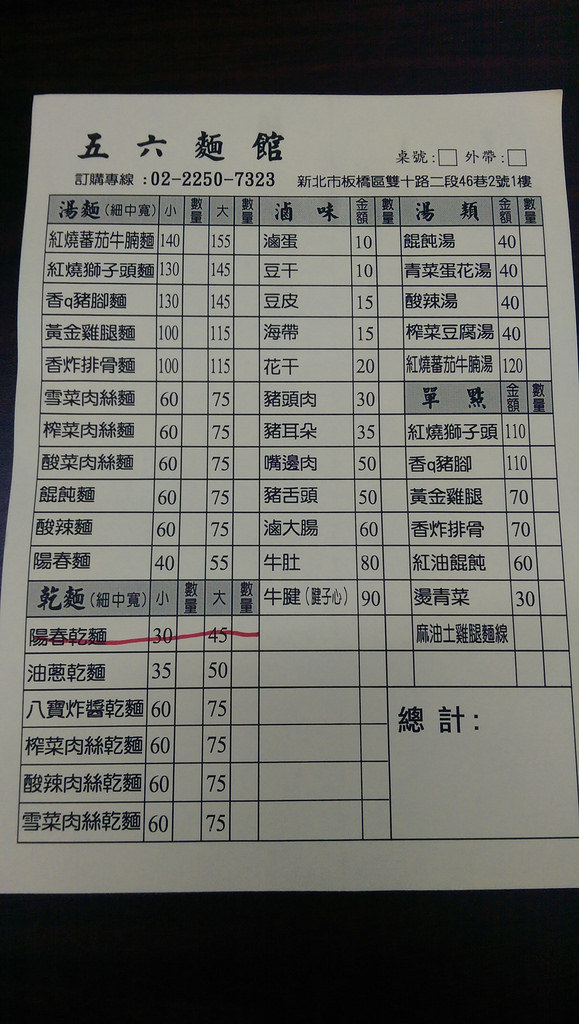 五六麵館
桌號:□ 外帶:□
訂購專線:02-2250-7323 新北市板橋區雙十路二段46巷2號1樓
湯麵(細中寬) 小 數量 大 數量
紅燒蕃茄牛腩麵 140 155
紅燒獅子頭麵 130 145
香q豬腳麵 130 145
黃金雞腿麵 100 115
香炸排骨麵 100 115
雪菜肉絲麵 60 75
榨菜肉絲麵 60 75
酸菜肉絲麵 60 75
餛飩麵 60 75
酸辣麵 60 75
陽春麵 40 55
乾麵(細中寬) 小 數量 大 數量
陽春乾麵 30 45
油蔥乾麵 35 50
八寶炸醬乾麵 60 75
榨菜肉絲乾麵 60 75
酸辣肉絲乾麵 60 75
雪菜肉絲乾麵 60 75
滷味 金額 數量
滷蛋 10
豆干 10
豆皮 15
海帶 15
花干 20
豬頭肉 30
豬耳朵 35
嘴邊肉 50
豬舌頭 50
滷大腸 60
牛肚 80
牛腱(腱子心) 90
湯類 金額 數量
餛飩湯 40
青菜蛋花湯 40
酸辣湯 40
榨菜豆腐湯 40
紅燒蕃茄牛腩湯 120
單點 金額 數量
紅燒獅子頭 110
香q豬腳 110
黃金雞腿 70
香炸排骨 70
紅油餛飩 60
燙青菜 30
麻油土雞腿麵線
總計: